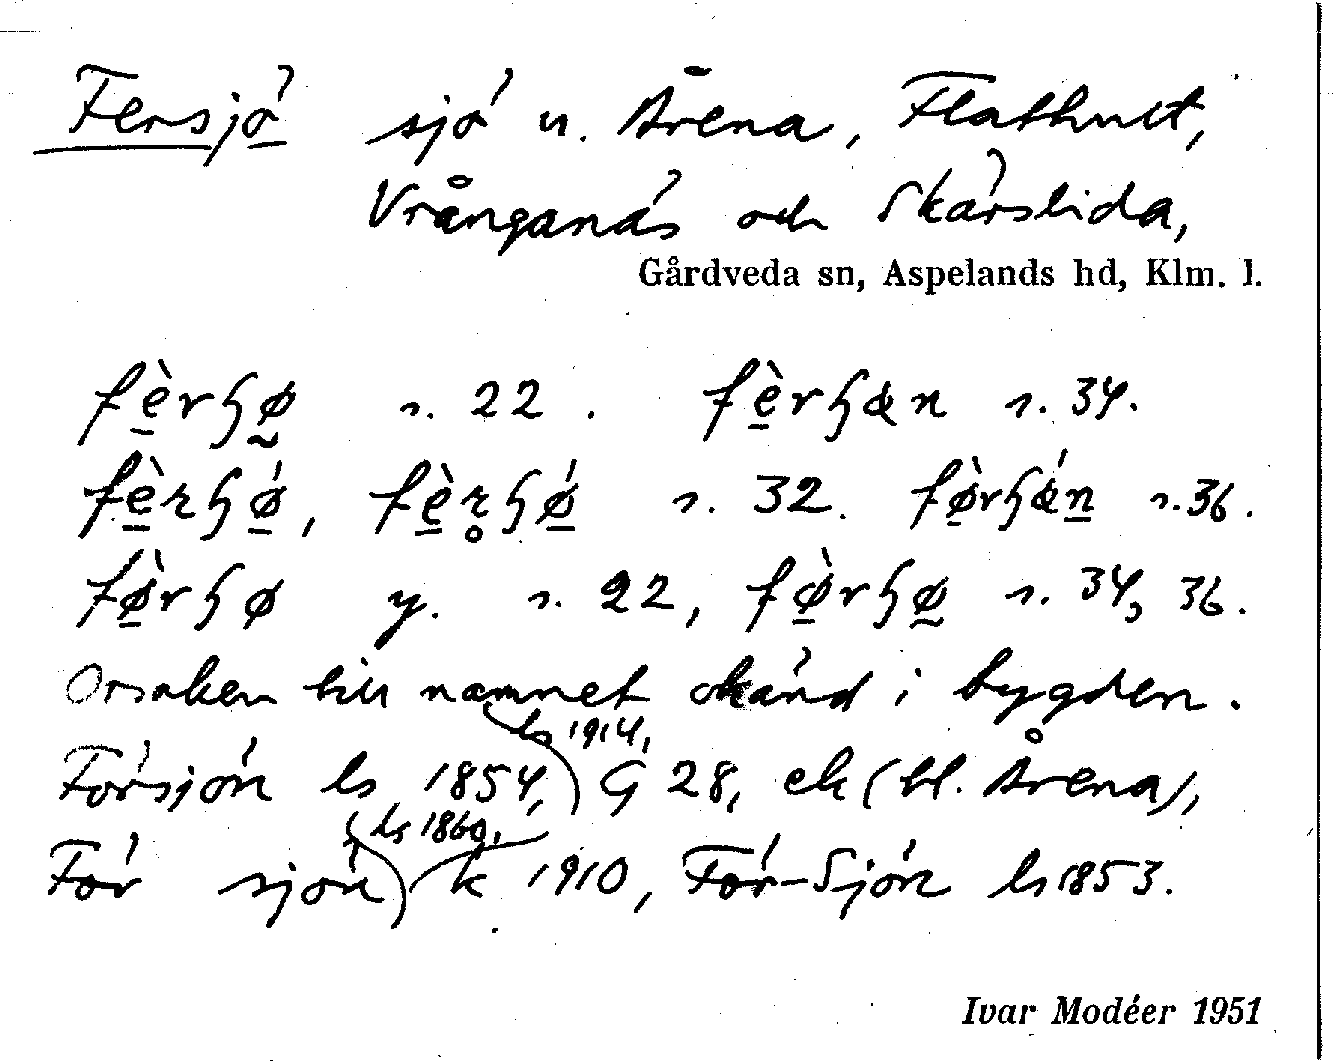 Fersjö sjö u. Årena, Flathult,
Vrånganäs och Skärslida,
Gårdveda sn, Aspelands hd, Klm. l.
fèrɧø s. 22. fèrɧæn s. 34.
fèrɧǿ, fèr̥ɧǿ s. 32. fø̀rɧǽn s. 36.
fø̀rɧø y. s. 22, fø̀rɧø s. 34, 36.
Orsaken till namnet okänd i bygden.
ls 1914,
Försjön ls 1854, G 28, ek (bl. Årena),
ls 1860,
För sjön k 1910, För-Sjön ls 1853.
Ivar Modéer 1951